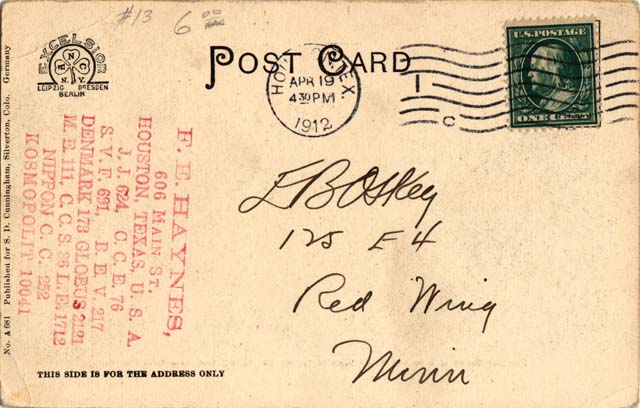 #13 6 00
EXCELSIOR
H N C
N.Y.
LEIPZIG DRESDEN
BERLIN
POST CARD
HO TEX.
APR 19
4 30 PM
1912
1
C
U.S. POSTAGE
ONE CENT
F. E. HAYNES,
606 MAIN ST.
HOUSTON, TEXAS, U. S. A.
J. J. 624, C. C. E. 76
S. V. F. 691, B. E. V. 217
DENMARK 173 GLOBUS 2121
M. E. 111, C. C. S. 36 L. E. 1712
NIPPON C. C. 252
KOSMOPOLIT 10041
E B Oskey
125 E 4
Red Wing
Minn
No. A 681 Published for S. D. Cunningham, Silverton, Colo. Germany
THIS SIDE IS FOR THE ADDRESS ONLY